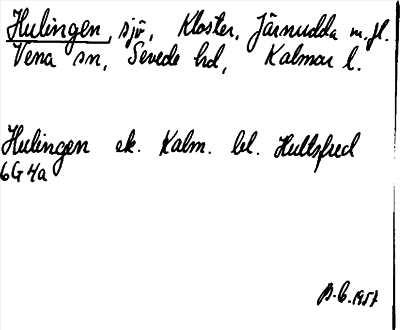 Hulingen, sjö, Kloster, Järnudda m.fl.
Vena sn, Sevede hd, Kalmar l.
Hulingen ek. Kalm. bl. Hultsfred
6G 4a
B.G. 1957